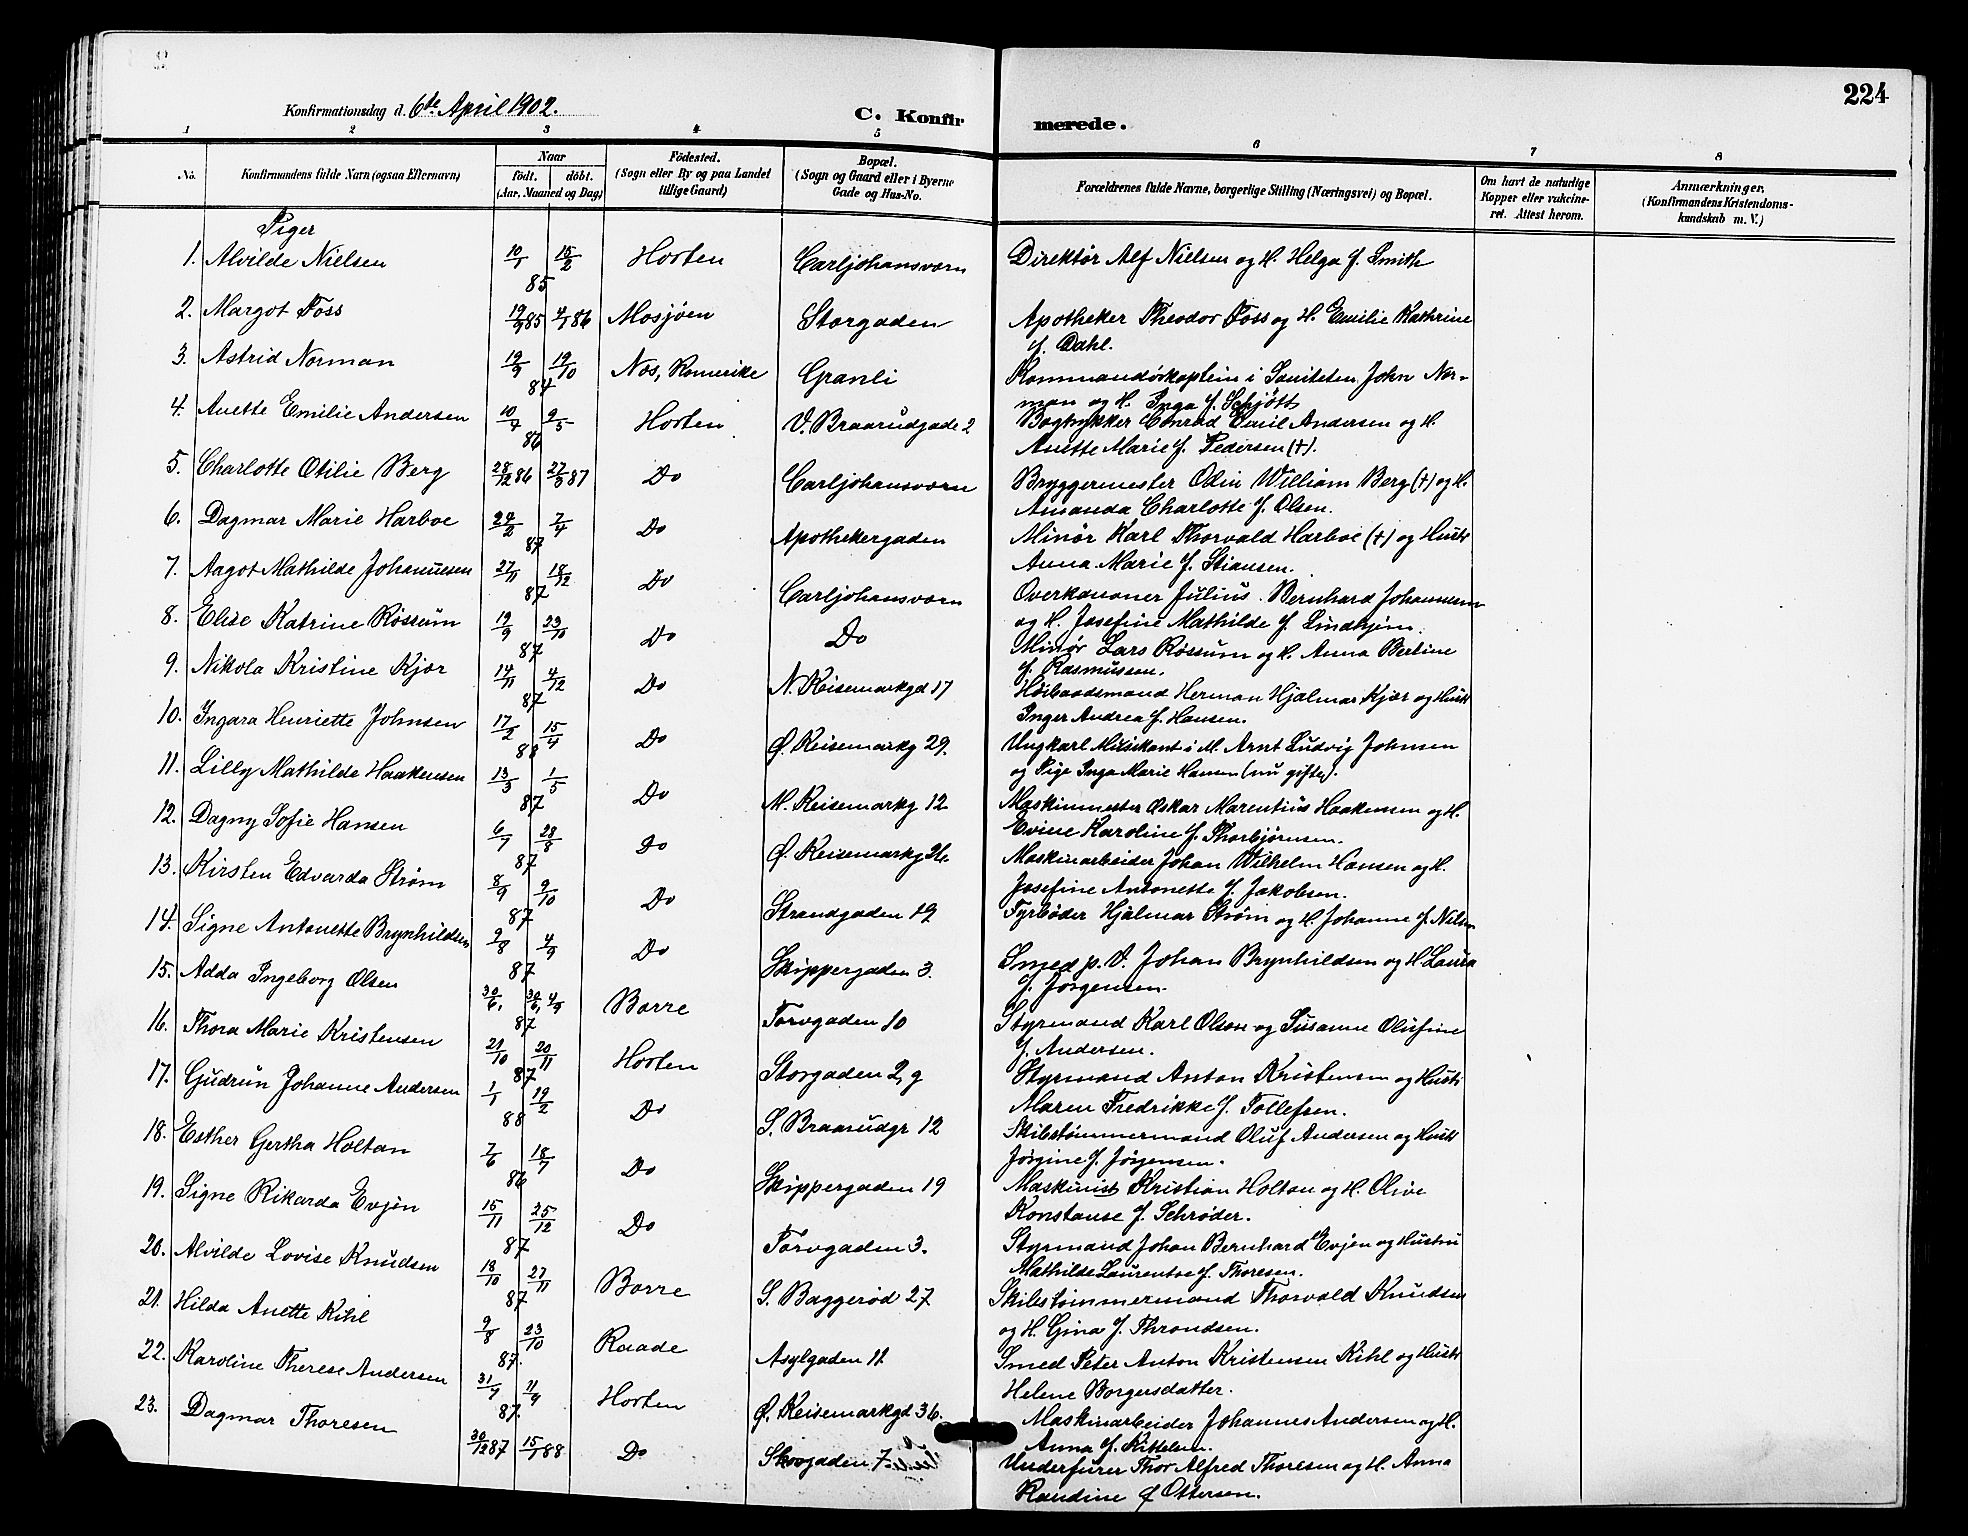 224
Konfirmationsdag d. 6te April 1902. C. Konfir merede.
1 2 3 4 5 6 7 8
No. Konfirmandens fulde Navn (ogsaa Efternavn) Naar födt. döbt. (Aar, Maaned og Dag) Födested. (Sogn eller By og paa Landet tillige Gaard) Bopæl. (Sogn og Gaard eller i Byerne Gade og Hus-No. Forældrenes fulde Navne, borgerlige Stilling (Næringsvei) og Bopæl. Om havt de naturlige Kopper eller vakcineret. Attest herom. Anmærkninger. (Konfirmandens Kristendomskundskab m. V.)
Piger
1. Alvilde Nielsen 10/1 15/2 85 Horten Carljohansværn Direktør Alf Nielsen og H. Helga f. Smith
2. Margot Foss 19/9 85 4/1 86 Mosjøen Storgaden Apotheker Theodor Foss og H. Emilie Kathrine
f. Dahl.
3. Astrid Norman 19/9 19/10 84 Nes, Romerike Granli Kommandörkaptein i Saniteten John Nor-
man og H. Inga f. Schjøtt
4. Anette Emilie Andersen 10/4 9/5 86 Horten V. Braarudgade 2 Bogtrykker Conrad Emil Andersen og H.
Anette Marie f. Pedersen (+).
5. Charlotte Otilie Berg 28/12 86 27/3 87 Do Carljohansværn Bryggermester Odin William Berg (+) og H.
Amanda Charlotte f. Olsen.
6. Dagmar Marie Harboe 24/2 7/4 87 Do Apothekergaden Minør Karl Thorvald Harboe (+) og Hustr
Anna Marie f. Stiansen.
7. Aagot Mathilde Johannesen 27/11 18/12 87 Do Carljohansværn Overkanoner Julius Bernhard Johannesen
og H. Josefine Mathilde f. Lindhjem.
8. Elise Katrine Røssum 19/9 23/10 87 Do Do Minør Lars Røssum og H. Anna Bertine
f. Rasmussen.
9. Nikola Kristine Kjær 14/11 4/12 87 Do N. Keisemarkgd 17 Høibaadsmand Herman Hjalmar Kjær og Hustr
Inger Andrea f. Hansen.
10. Ingara Henriette Johnsen 17/2 15/4 88 Do Ø. Keisemarkg 29. Ungkarl Musikant i M. Arnt Ludvig Johnsen
og Pige Inga Marie Hansen (nu gifte).
11. Lilly Mathilde Haakensen 13/3 1/5 87 Do M. Keisemarkg 12 Maskinmester Oskar Marentius Haakensen og H.
Evine Karoline f. Thorbjørnsen.
12. Dagny Sofie Hansen 6/7 28/8 87 Do Ø. Keisemarkg 26. Maskinarbeider Johan Wilhelm Hansen og H.
Josefine Antonette f. Jakobsen.
13. Kirsten Edvarda Strøm 8/9 9/10 87 Do Strandgaden 19 Fyrbøder Hjalmar Strøm og H. Johanne f. Nilsen
14. Signe Antonette Brynhildsen 9/8 4/9 87 Do Skippergaden 3. Smed p. V. Johan Brynhildsen og H. Laura
f. Jørgensen.
15. Adda Ingeborg Olsen 30/6, 30/6, 4/9 87 Borre Torvgaden 10 Styrmand Karl Olsen og Susanne Olufine
f. Andersen.
16. Thora Marie Kristensen 21/10 20/11 87 Horten Storgaden 2, 9 Styrmand Anton Kristensen og Hustr
Maren Fredrikke f. Tollefsen.
17. Gudrun Johanne Andersen 1/1 19/2 88 Do S. Braarudgr 12 Skibstømmermand Oluf Andersen og Hustr
Jørgine f. Jørgensen.
18. Esther Gertha Holtan 7/6 18/7 86 Do Skippergaden 19 Maskinist Kristian Holtan og H. Olive
Konstanse f. Schrøder.
19. Signe Rikarda Evjen 15/11 25/12 87 Do Torvgaden 3. Styrmand Johan Bernhard Evjen og Hustru
Mathilde Laurentse f. Thoresen.
20. Alvilde Lovise Knudsen 18/10 27/11 87 Borre S. Baggerød 27 Skibstømmermand Thorvald Knudsen
og H. Gina f. Throndsen.
21. Hilda Anette Kihl 9/8 23/10 87. Raade Asylgaden 11 Smed Peter Anton Kristensen Kihl og Hustr
Helene Borgersdatter.
22. Karoline Therese Andersen 31/7 11/9 87. Horten Ø. Keisemarkgd 36. Maskinarbeider Johannes Andersen og H.
Anna f. Kittelsen.
23. Dagmar Thoresen 30/12 87 15/1 88 Do Skovgaden 7 Underfurer Thor Alfred Thoresen og H. Anna
Randine f Ottersen.